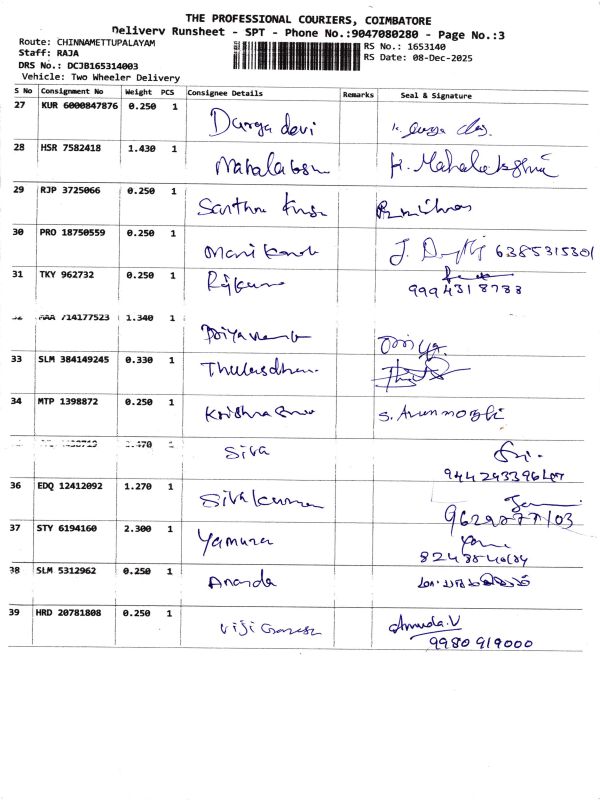 THE PROFESSIONAL COURIERS, COIMBATORE
Delivery Runsheet - SPT - Phone No.:9047080280 - Page No.:3
Route: CHINNAMETTUPALAYAM
Staff: RAJA
DRS No.: DCJB165314003
Vehicle: Two Wheeler Delivery
RS No.: 1653140
RS Date: 08-Dec-2025
S No Consignment No Weight PCS Consignee Details Remarks Seal & Signature
27 KUR 6000847876 0.250 1 Durga devi
28 HSR 7582418 1.430 1 Mahalaksm K. Mahalakshmi
29 RJP 3725066 0.250 1
30 PRO 18750559 0.250 1 J. 6385315301
31 TKY 962732 0.250 1 Rajkumar
9994318788
714177523 1.340 1 Priya Priya
33 SLM 384149245 0.330 1
34 MTP 1398872 0.250 1 S. Arunmozhi
1 Siva
36 EDQ 12412092 1.270 1 Sivakumar
37 STY 6194160 2.300 1 Yamuna
38 SLM 5312962 0.250 1 Ananda
39 HRD 20781808 0.250 1 Viji Amuda.V
9980919000